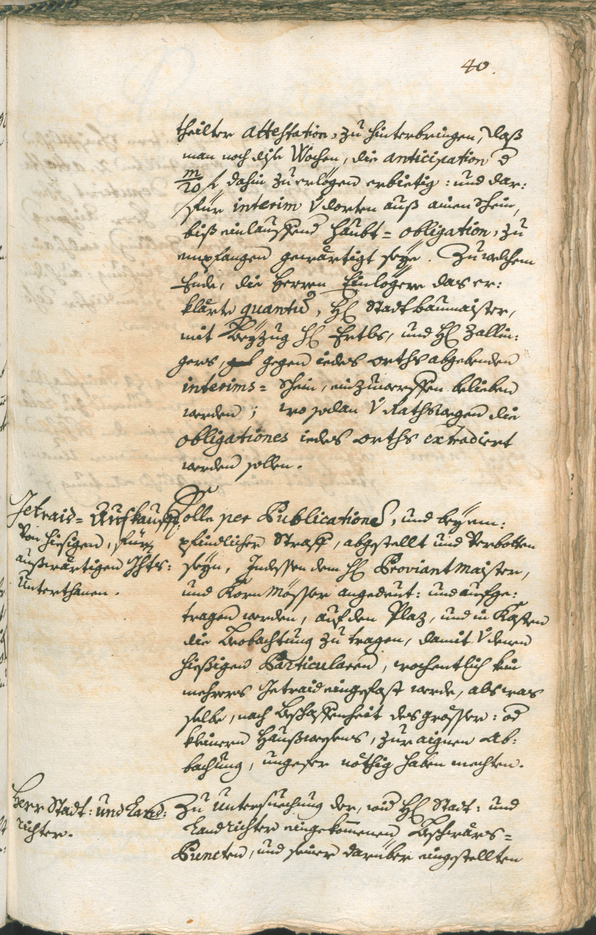 40.
theilter attestation, zu hinterbringen, daß
man noch dise Wochen, die anticipation d
m/20 f, dahin zuerlögen erbietig: und dar:
für interim v dorten auß ainen schein,
biß einlauffend haubt= obligation, zu
empfangen gewärtigt seye. Zu welchem
Ende, die Herren Einlögere das er:
klärte quantum, H: Stadtbaumaister,
mit Beyzug H: Ertls, und H: Zallin:
gers gegen iedes orths abgebenden
interims= schein, einzuwerffen belieben
werden; wo sodan v Rathswegen die
obligationes iedes orths extradiert
werden sollen.
Getraid= Aufkauff
von hiesigen, für
außwärtigen Ghts:
Unterthanen.
Solle per Publicationes, und bey em:
pfindlicher Straff, abgestellt und verbotten
seyn, Indessen dem H: Proviantmaister,
und Kornmösser angedeut: und aufge:
tragen werden, auf den Plaz, und in Kästen
die Beobachtung zu tragen, damit v denen
hiesigen Particularen, wochentlich kein
mehrers Getraid eingefast werde, als was
selbe, nach Beschaffenheit des grösser: od
kleinern Haußwesens, zur aignen Ab:
bachung, ungefer nöthig haben mechten.
Herr Stadt: und Land:
richter.
Zu Untersuchung der, von H: Stadt: und
Landrichter eingekommenen Beschwärs=
Puncten, und seiner darüber eingestellten